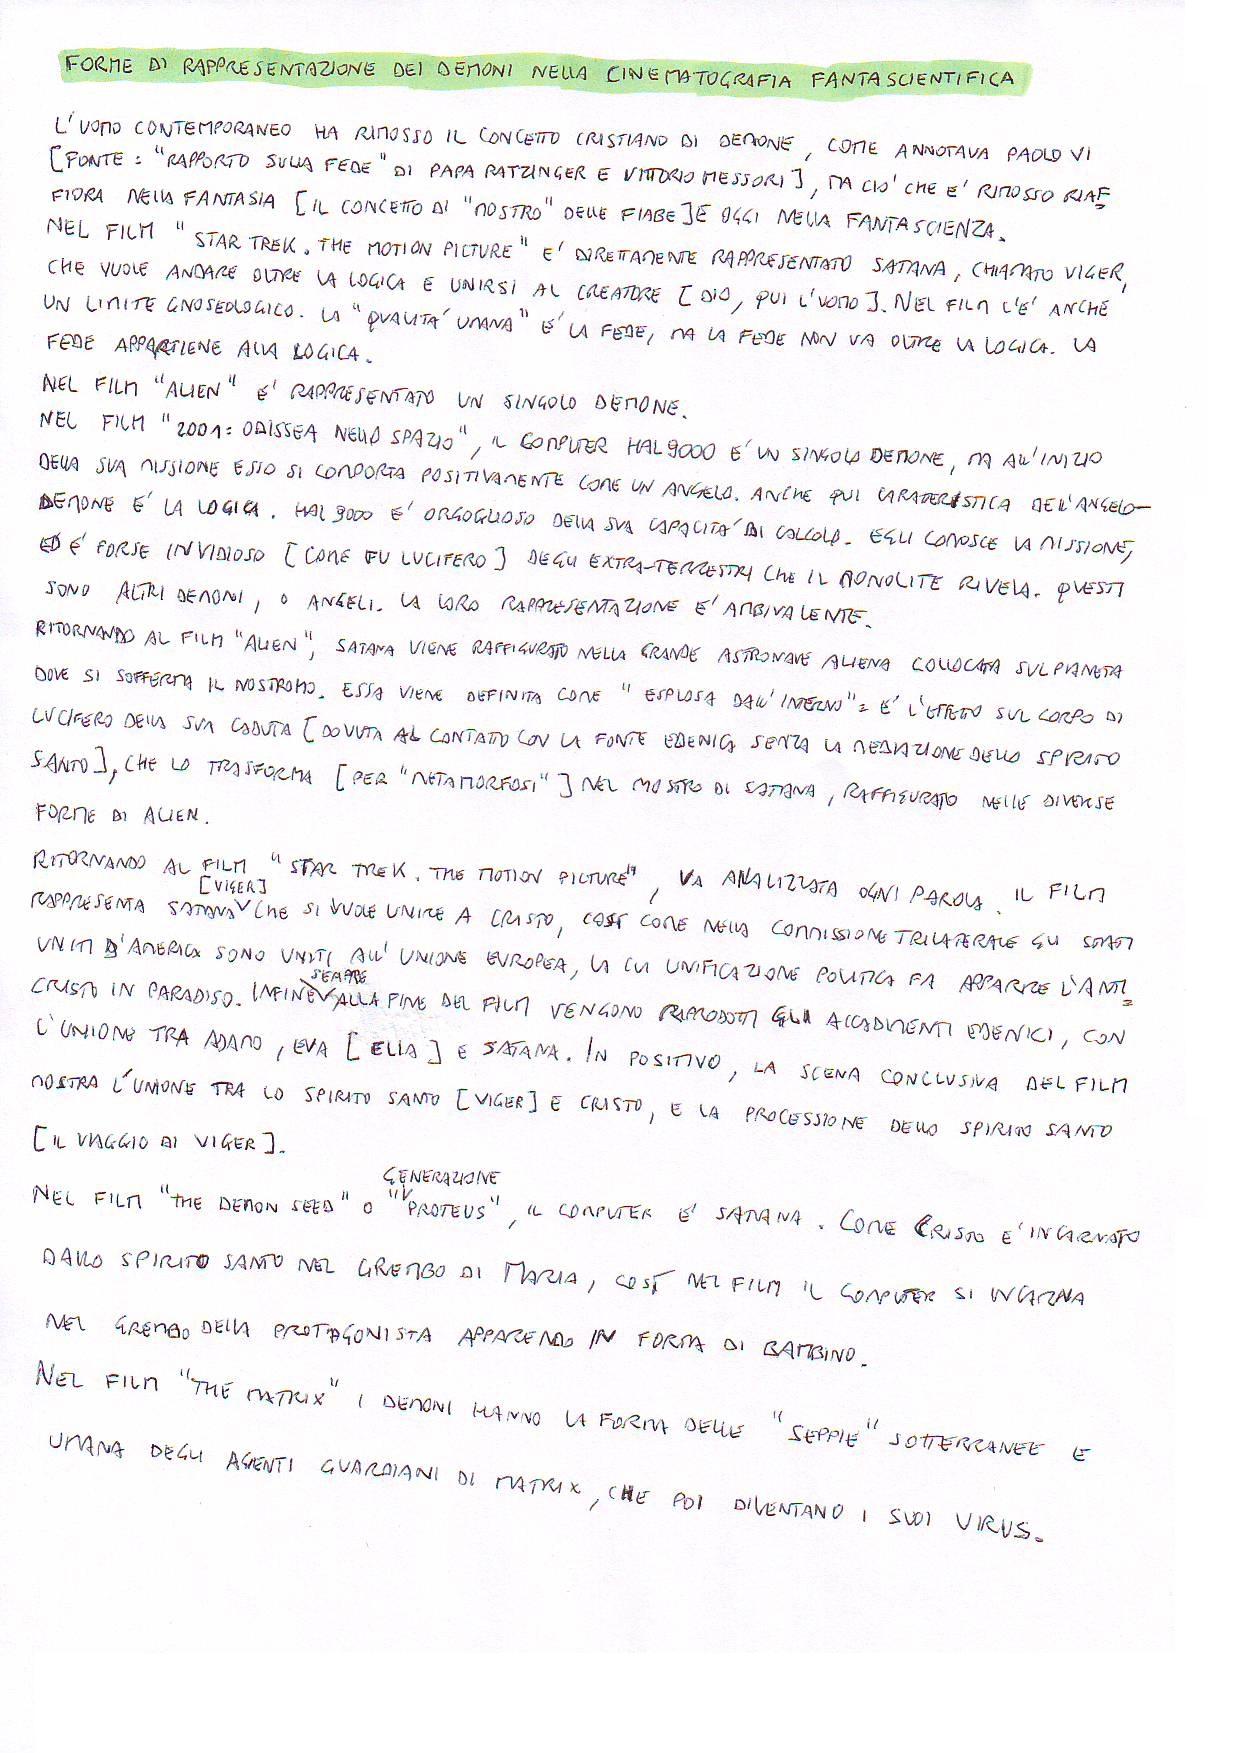 FORME DI RAPPRESENTAZIONE DEI DEMONI NELLA CINEMATOGRAFIA FANTASCIENTIFICA
L'UOMO CONTEMPORANEO HA RIMOSSO IL CONCETTO CRISTIANO DI DEMONE, COME ANNOTAVA PAOLO VI
[FONTE: "RAPPORTO SULLA FEDE" DI PAPA RATZINGER E VITTORIO MESSORI], MA CIO' CHE E' RIMOSSO RIAF=
FIORA NELLA FANTASIA [IL CONCETTO DI "MOSTRO" DELLE FIABE] E OGGI NELLA FANTASCIENZA.
NEL FILM "STAR TREK. THE MOTION PICTURE" E' DIRETTAMENTE RAPPRESENTATO SATANA, CHIAMATO VIGER,
CHE VUOLE ANDARE OLTRE LA LOGICA E UNIRSI AL CREATORE [DIO, QUI L'UOMO]. NEL FILM C'E' ANCHE
UN LIMITE GNOSEOLOGICO. LA "QUALITA' UMANA" E' LA FEDE, MA LA FEDE NON VA OLTRE LA LOGICA. LA
FEDE APPARTIENE ALLA LOGICA.
NEL FILM "ALIEN" E' RAPPRESENTATO UN SINGOLO DEMONE.
NEL FILM "2001: ODISSEA NELLO SPAZIO", IL COMPUTER HAL 9000 E' UN SINGOLO DEMONE, MA ALL'INIZIO
DELLA SUA MISSIONE ESSO SI COMPORTA POSITIVAMENTE COME UN ANGELO. ANCHE QUI CARATTERISTICA DELL'ANGELO-
DEMONE E' LA LOGICA. HAL 9000 E' ORGOGLIOSO DELLA SUA CAPACITA' DI CALCOLO. EGLI CONOSCE LA MISSIONE,
ED E' FORSE INVIDIOSO [COME FU LUCIFERO] DEGLI EXTRA-TERRESTRI CHE IL MONOLITE RIVELA. QUESTI
SONO ALTRI DEMONI, O ANGELI. LA LORO RAPPRESENTAZIONE E' AMBIVALENTE.
RITORNANDO AL FILM "ALIEN", SATANA VIENE RAFFIGURATO NELLA GRANDE ASTRONAVE ALIENA COLLOCATA SUL PIANETA
DOVE SI SOFFERMA IL NOSTROMO. ESSA VIENE DEFINITA COME "ESPLOSA DALL'INTERNO": E' L'EFFETTO SUL CORPO DI
LUCIFERO DELLA SUA CADUTA [DOVUTA AL CONTATTO CON LA FONTE EDENICA SENZA LA MEDIAZIONE DELLO SPIRITO
SANTO], CHE LO TRASFORMA [PER "METAMORFOSI"] NEL MOSTRO DI SATANA, RAFFIGURATO NELLE DIVERSE
FORME DI ALIEN.
RITORNANDO AL FILM "STAR TREK. THE MOTION PICTURE", VA ANALIZZATA OGNI PAROLA. IL FILM
[VIGER]
RAPPRESENTA SATANA CHE SI VUOLE UNIRE A CRISTO, COSI' COME NELLA COMMISSIONE TRILATERALE GLI STATI
UNITI D'AMERICA SONO UNITI ALL'UNIONE EUROPEA, LA CUI UNIFICAZIONE POLITICA FA APPARIRE L'ANTI=
SEMPRE
CRISTO IN PARADISO. INFINE ALLA FINE DEL FILM VENGONO RIPRODOTTI GLI ACCADIMENTI EDENICI, CON
L'UNIONE TRA ADAMO, EVA [ELIA] E SATANA. IN POSITIVO, LA SCENA CONCLUSIVA DEL FILM
MOSTRA L'UNIONE TRA LO SPIRITO SANTO [VIGER] E CRISTO, E LA PROCESSIONE DELLO SPIRITO SANTO
[IL VIAGGIO DI VIGER].
GENERAZIONE
NEL FILM "THE DEMON SEED" O "PROTEUS", IL COMPUTER E' SATANA. COME CRISTO E' INCARNATO
DALLO SPIRITO SANTO NEL GREMBO DI MARIA, COSI' NEL FILM IL COMPUTER SI INCARNA
NEL GREMBO DELLA PROTAGONISTA APPARENDO IN FORMA DI BAMBINO.
NEL FILM "THE MATRIX" I DEMONI HANNO LA FORMA DELLE "SEPPIE" SOTTERRANEE E
UMANA DEGLI AGENTI GUARDIANI DI MATRIX, CHE POI DIVENTANO I SUOI VIRUS.